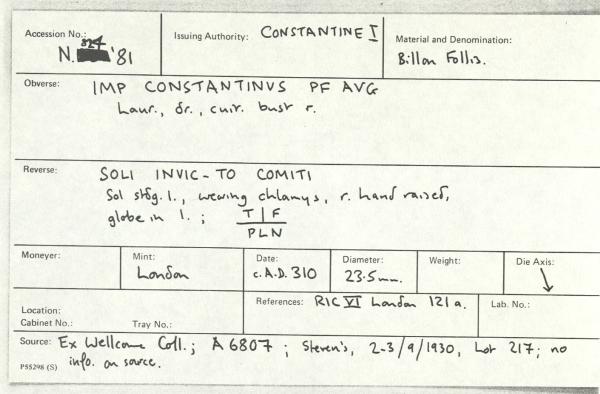 Accession No.: 324
N. '81
Issuing Authority: CONSTANTINE I
Material and Denomination:
Billon Follis.
Obverse: IMP CONSTANTINVS PF AVG
Laur., dr., cuir. bust r.
Reverse: SOLI INVIC-TO COMITI
Sol stdg. l., wearing chlamys, r. hand raised,
globe in l.; T | F
PLN
Moneyer:
Mint:
London
Date:
c. A.D. 310
Diameter:
23.5mm.
Weight:
Die Axis:
↓
Location:
Cabinet No.: Tray No.:
References: RIC VI London 121a.
Lab. No.:
Source: Ex Wellcome Coll.; A6807; Steven's, 2-3/9/1930, Lot 217; no
P55298 (S) info. on source.